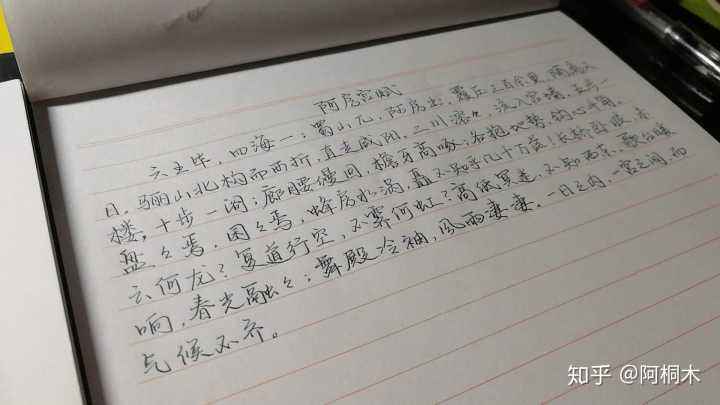 阿房宫赋
六王毕，四海一；蜀山兀，阿房出，覆压三百余里，隔离天
日。骊山北构而西折，直走咸阳。二川溶々，流入宫墙。五步一
楼，十步一阁；廊腰缦回，檐牙高啄；各抱地势，钩心斗角。
盘々焉，囷々焉，蜂房水涡，矗不知乎几千万落！长桥卧波，未
云何龙？复道行空，不霁何虹？高低冥迷，不知西东。歌台暖
响，春光融々；舞殿冷袖，风雨凄凄。一日之内，一宫之间，而
气候不齐。
知乎 @阿桐木